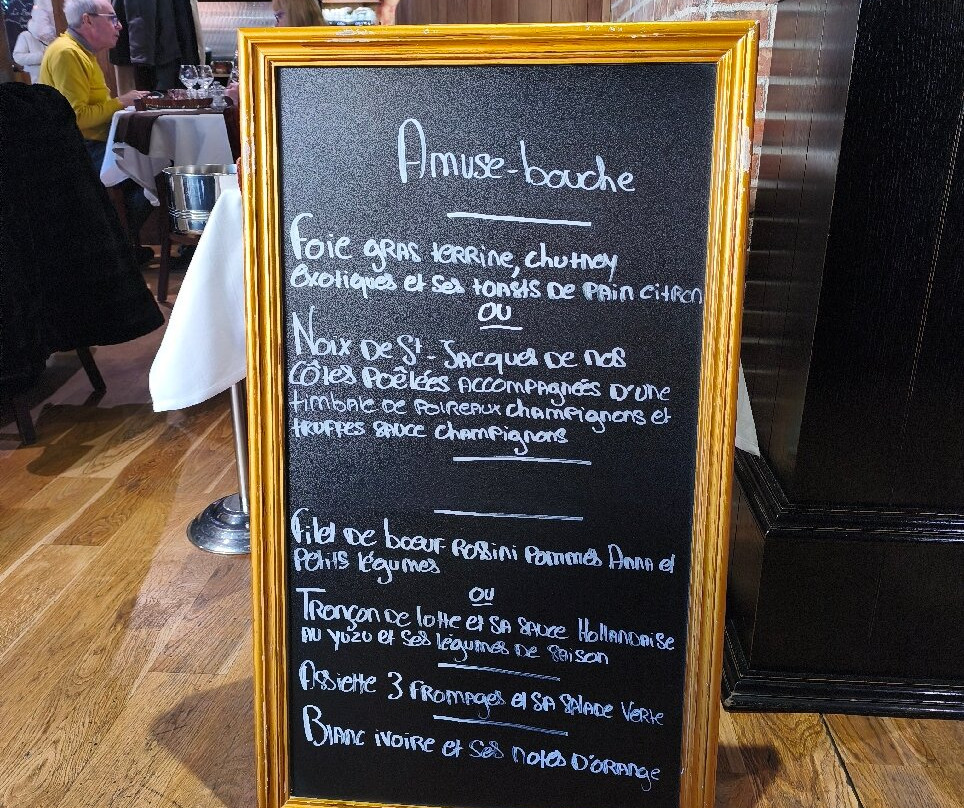 Amuse-bouche
Foie gras terrine, chutney
exotiques et ses toasts de pain citron
ou
Noix de St-Jacques de nos
côtes poêlées accompagnées d'une
timbale de poireaux champignons et
truffes sauce champignons
Filet de boeuf Rossini pommes Anna et
Petits légumes
ou
Tronçon de lotte et sa sauce Hollandaise
au yuzu et ses légumes de saison
Assiette 3 fromages et sa salade verte
Blanc ivoire et ses notes d'orange